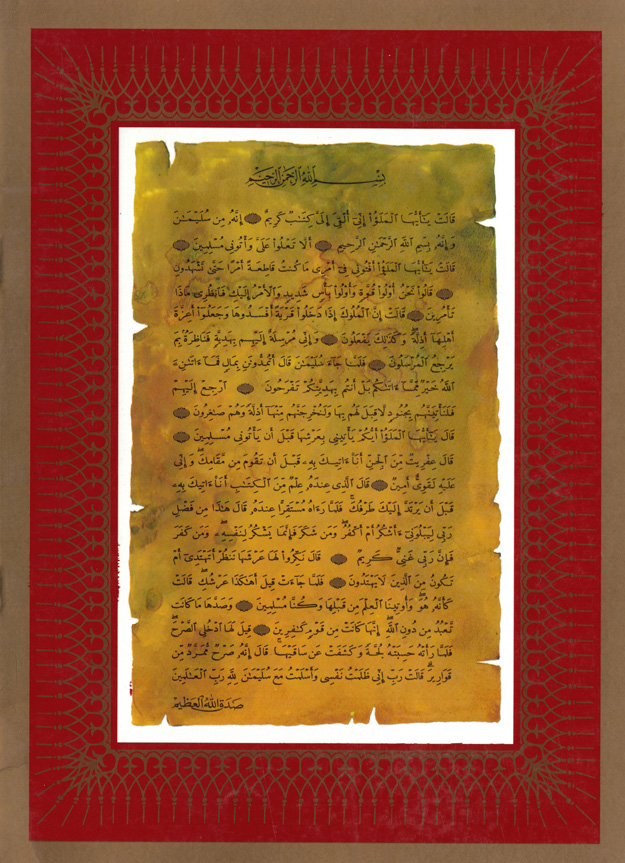 بِسْمِ اللَّهِ الرَّحْمَٰنِ الرَّحِيمِ
قَالَتْ يَٰٓأَيُّهَا ٱلْمَلَؤُا۟ إِنِّىٓ أُلْقِىَ إِلَىَّ كِتَٰبٌ كَرِيمٌ إِنَّهُۥ مِن سُلَيْمَٰنَ
وَإِنَّهُۥ بِسْمِ ٱللَّهِ ٱلرَّحْمَٰنِ ٱلرَّحِيمِ أَلَّا تَعْلُوا۟ عَلَىَّ وَأْتُونِى مُسْلِمِينَ
قَالَتْ يَٰٓأَيُّهَا ٱلْمَلَؤُا۟ أَفْتُونِى فِىٓ أَمْرِى مَا كُنتُ قَاطِعَةً أَمْرًا حَتَّىٰ تَشْهَدُونِ
قَالُوا۟ نَحْنُ أُو۟لُوا۟ قُوَّةٍ وَأُو۟لُوا۟ بَأْسٍ شَدِيدٍ وَٱلْأَمْرُ إِلَيْكِ فَٱنظُرِى مَاذَا
تَأْمُرِينَ قَالَتْ إِنَّ ٱلْمُلُوكَ إِذَا دَخَلُوا۟ قَرْيَةً أَفْسَدُوهَا وَجَعَلُوٓا۟ أَعِزَّةَ
أَهْلِهَآ أَذِلَّةً وَكَذَٰلِكَ يَفْعَلُونَ وَإِنِّى مُرْسِلَةٌ إِلَيْهِم بِهَدِيَّةٍ فَنَاظِرَةٌۢ بِمَ
يَرْجِعُ ٱلْمُرْسَلُونَ فَلَمَّا جَآءَ سُلَيْمَٰنَ قَالَ أَتُمِدُّونَنِ بِمَالٍ فَمَآ ءَاتَىٰنِۦَ
ٱللَّهُ خَيْرٌ مِّمَّآ ءَاتَىٰكُم بَلْ أَنتُم بِهَدِيَّتِكُمْ تَفْرَحُونَ ٱرْجِعْ إِلَيْهِمْ
فَلَنَأْتِيَنَّهُم بِجُنُودٍ لَّا قِبَلَ لَهُم بِهَا وَلَنُخْرِجَنَّهُم مِّنْهَآ أَذِلَّةً وَهُمْ صَٰغِرُونَ
قَالَ يَٰٓأَيُّهَا ٱلْمَلَؤُا۟ أَيُّكُمْ يَأْتِينِى بِعَرْشِهَا قَبْلَ أَن يَأْتُونِى مُسْلِمِينَ
قَالَ عِفْرِيتٌ مِّنَ ٱلْجِنِّ أَنَا۠ ءَاتِيكَ بِهِۦ قَبْلَ أَن تَقُومَ مِن مَّقَامِكَ وَإِنِّى
عَلَيْهِ لَقَوِىٌّ أَمِينٌ قَالَ ٱلَّذِى عِندَهُۥ عِلْمٌ مِّنَ ٱلْكِتَٰبِ أَنَا۠ ءَاتِيكَ بِهِۦ
قَبْلَ أَن يَرْتَدَّ إِلَيْكَ طَرْفُكَ فَلَمَّا رَءَاهُ مُسْتَقِرًّا عِندَهُۥ قَالَ هَٰذَا مِن فَضْلِ
رَبِّى لِيَبْلُوَنِىٓ ءَأَشْكُرُ أَمْ أَكْفُرُ وَمَن شَكَرَ فَإِنَّمَا يَشْكُرُ لِنَفْسِهِۦ وَمَن كَفَرَ
فَإِنَّ رَبِّى غَنِىٌّ كَرِيمٌ قَالَ نَكِّرُوا۟ لَهَا عَرْشَهَا نَنظُرْ أَتَهْتَدِىٓ أَمْ
تَكُونُ مِنَ ٱلَّذِينَ لَا يَهْتَدُونَ فَلَمَّا جَآءَتْ قِيلَ أَهَٰكَذَا عَرْشُكِ قَالَتْ
كَأَنَّهُۥ هُوَ وَأُوتِينَا ٱلْعِلْمَ مِن قَبْلِهَا وَكُنَّا مُسْلِمِينَ وَصَدَّهَا مَا كَانَت
تَّعْبُدُ مِن دُونِ ٱللَّهِ إِنَّهَا كَانَتْ مِن قَوْمٍ كَٰفِرِينَ قِيلَ لَهَا ٱدْخُلِى ٱلصَّرْحَ
فَلَمَّا رَأَتْهُ حَسِبَتْهُ لُجَّةً وَكَشَفَتْ عَن سَاقَيْهَا قَالَ إِنَّهُۥ صَرْحٌ مُّمَرَّدٌ مِّن
قَوَارِيرَ قَالَتْ رَبِّ إِنِّى ظَلَمْتُ نَفْسِى وَأَسْلَمْتُ مَعَ سُلَيْمَٰنَ لِلَّهِ رَبِّ ٱلْعَٰلَمِينَ
صَدَقَ اللَّهُ الْعَظِيمُ